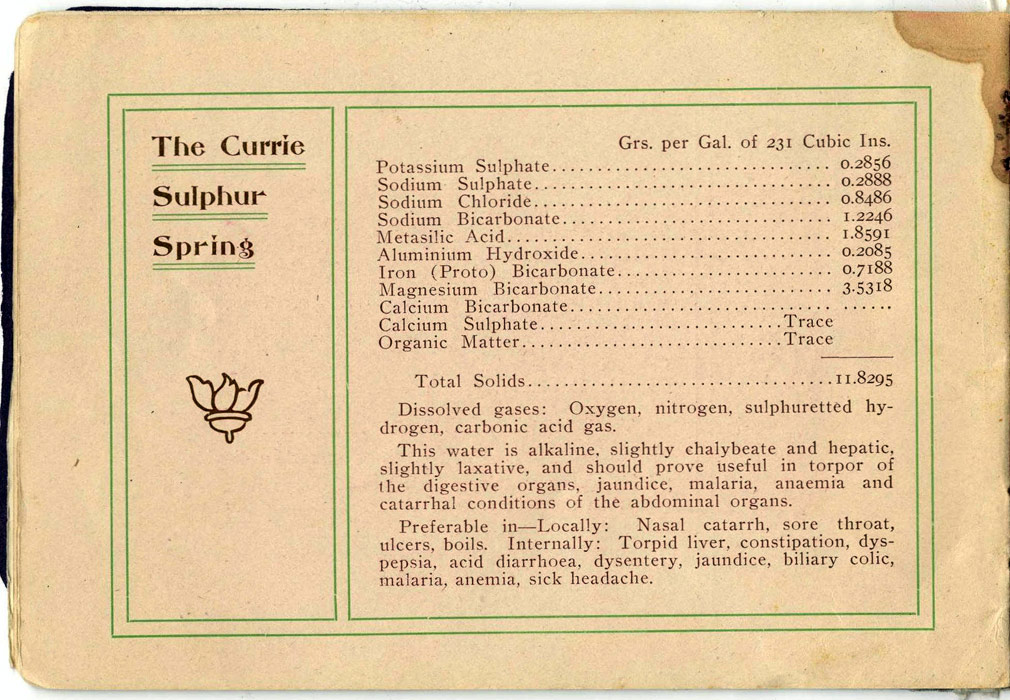 The Currie
Sulphur
Spring
Grs. per Gal. of 231 Cubic Ins.
Potassium Sulphate.............................. 0.2856
Sodium Sulphate................................ 0.2888
Sodium Chloride................................ 0.8486
Sodium Bicarbonate............................. 1.2246
Metasilic Acid.................................. 1.8591
Aluminium Hydroxide............................ 0.2085
Iron (Proto) Bicarbonate......................... 0.7188
Magnesium Bicarbonate.......................... 3.5318
Calcium Bicarbonate............................. ......
Calcium Sulphate.........................Trace
Organic Matter...........................Trace
Total Solids................................11.8295
Dissolved gases: Oxygen, nitrogen, sulphuretted hy-
drogen, carbonic acid gas.
This water is alkaline, slightly chalybeate and hepatic,
slightly laxative, and should prove useful in torpor of
the digestive organs, jaundice, malaria, anaemia and
catarrhal conditions of the abdominal organs.
Preferable in—Locally: Nasal catarrh, sore throat,
ulcers, boils. Internally: Torpid liver, constipation, dys-
pepsia, acid diarrhoea, dysentery, jaundice, biliary colic,
malaria, anemia, sick headache.